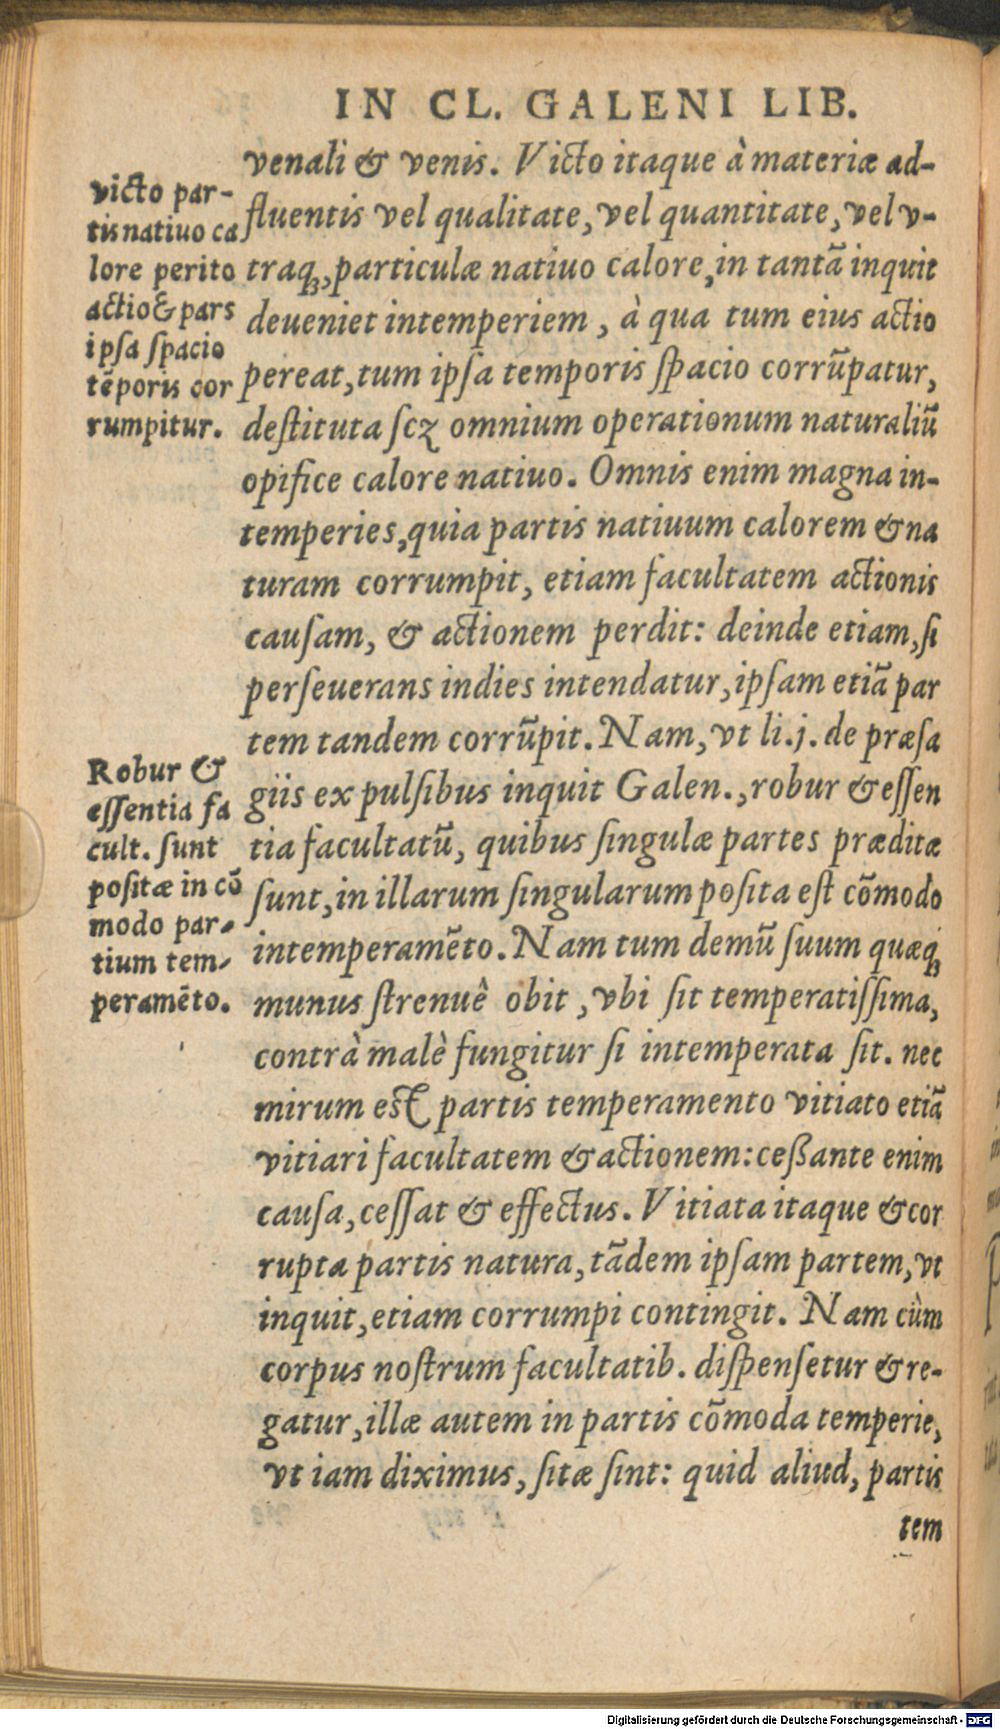 IN CL. GALENI LIB.
venali & venis. Victo itaque à materiæ ad-
fluentis vel qualitate, vel quantitate, vel v-
traq₃, particulæ natiuo calore, in tantā inquit
deueniet intemperiem, à qua tum eius actio
pereat, tum ipſa temporis ſpacio corrūpatur,
deſtituta ſcꝫ omnium operationum naturaliū
opifice calore natiuo. Omnis enim magna in-
temperies, quia partis natiuum calorem & na
turam corrumpit, etiam facultatem actionis
cauſam, & actionem perdit: deinde etiam, ſi
perſeuerans indies intendatur, ipſam etiā par
tem tandem corrūpit. Nam, vt li.j. de præſa
giis ex pulſibus inquit Galen., robur & eſſen
tia facultatū, quibus ſingulæ partes præditæ
ſunt, in illarum ſingularum poſita eſt cōmodo
intemperamēto. Nam tum demū ſuum quæq₃
munus ſtrenuê obit, vbi ſit temperatiſſima,
contrà malè fungitur ſi intemperata ſit. nec
mirum eſt partis temperamento vitiato etiā
vitiari facultatem & actionem: ceßante enim
cauſa, ceſſat & effectus. Vitiata itaque & cor
rupta partis natura, tādem ipſam partem, vt
inquit, etiam corrumpi contingit. Nam cùm
corpus noſtrum facultatib. diſpenſetur & re-
gatur, illæ autem in partis cōmoda temperie,
vt iam diximus, ſitæ ſint: quid aliud, partis
tem
victo par-
tis natiuo ca
lore perito
actio & pars
ipſa ſpacio
tēporis cor
rumpitur.
Robur &
eſſentia fa
cult. ſunt
poſitæ in cō
modo par-
tium tem-
peramēto.
Digitalisierung gefördert durch die Deutsche Forschungsgemeinschaft - DFG